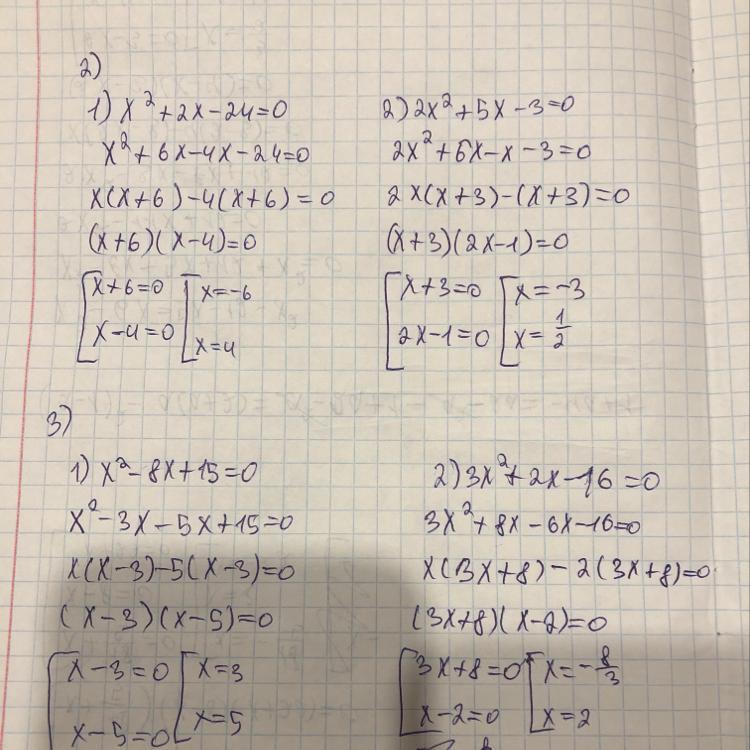 2)
1) x² + 2x - 24 = 0
x² + 6x - 4x - 24 = 0
x(x + 6) - 4(x + 6) = 0
(x + 6)(x - 4) = 0
[ x + 6 = 0 [ x = -6
x - 4 = 0 x = 4
2) 2x² + 5x - 3 = 0
2x² + 6x - x - 3 = 0
2x(x + 3) - (x + 3) = 0
(x + 3)(2x - 1) = 0
[ x + 3 = 0 [ x = -3
2x - 1 = 0 x = 1/2
3)
1) x² - 8x + 15 = 0
x² - 3x - 5x + 15 = 0
x(x - 3) - 5(x - 3) = 0
(x - 3)(x - 5) = 0
[ x - 3 = 0 [ x = 3
x - 5 = 0 x = 5
2) 3x² + 2x - 16 = 0
3x² + 8x - 6x - 16 = 0
x(3x + 8) - 2(3x + 8) = 0
(3x + 8)(x - 2) = 0
[ 3x + 8 = 0 [ x = -8/3
x - 2 = 0 x = 2